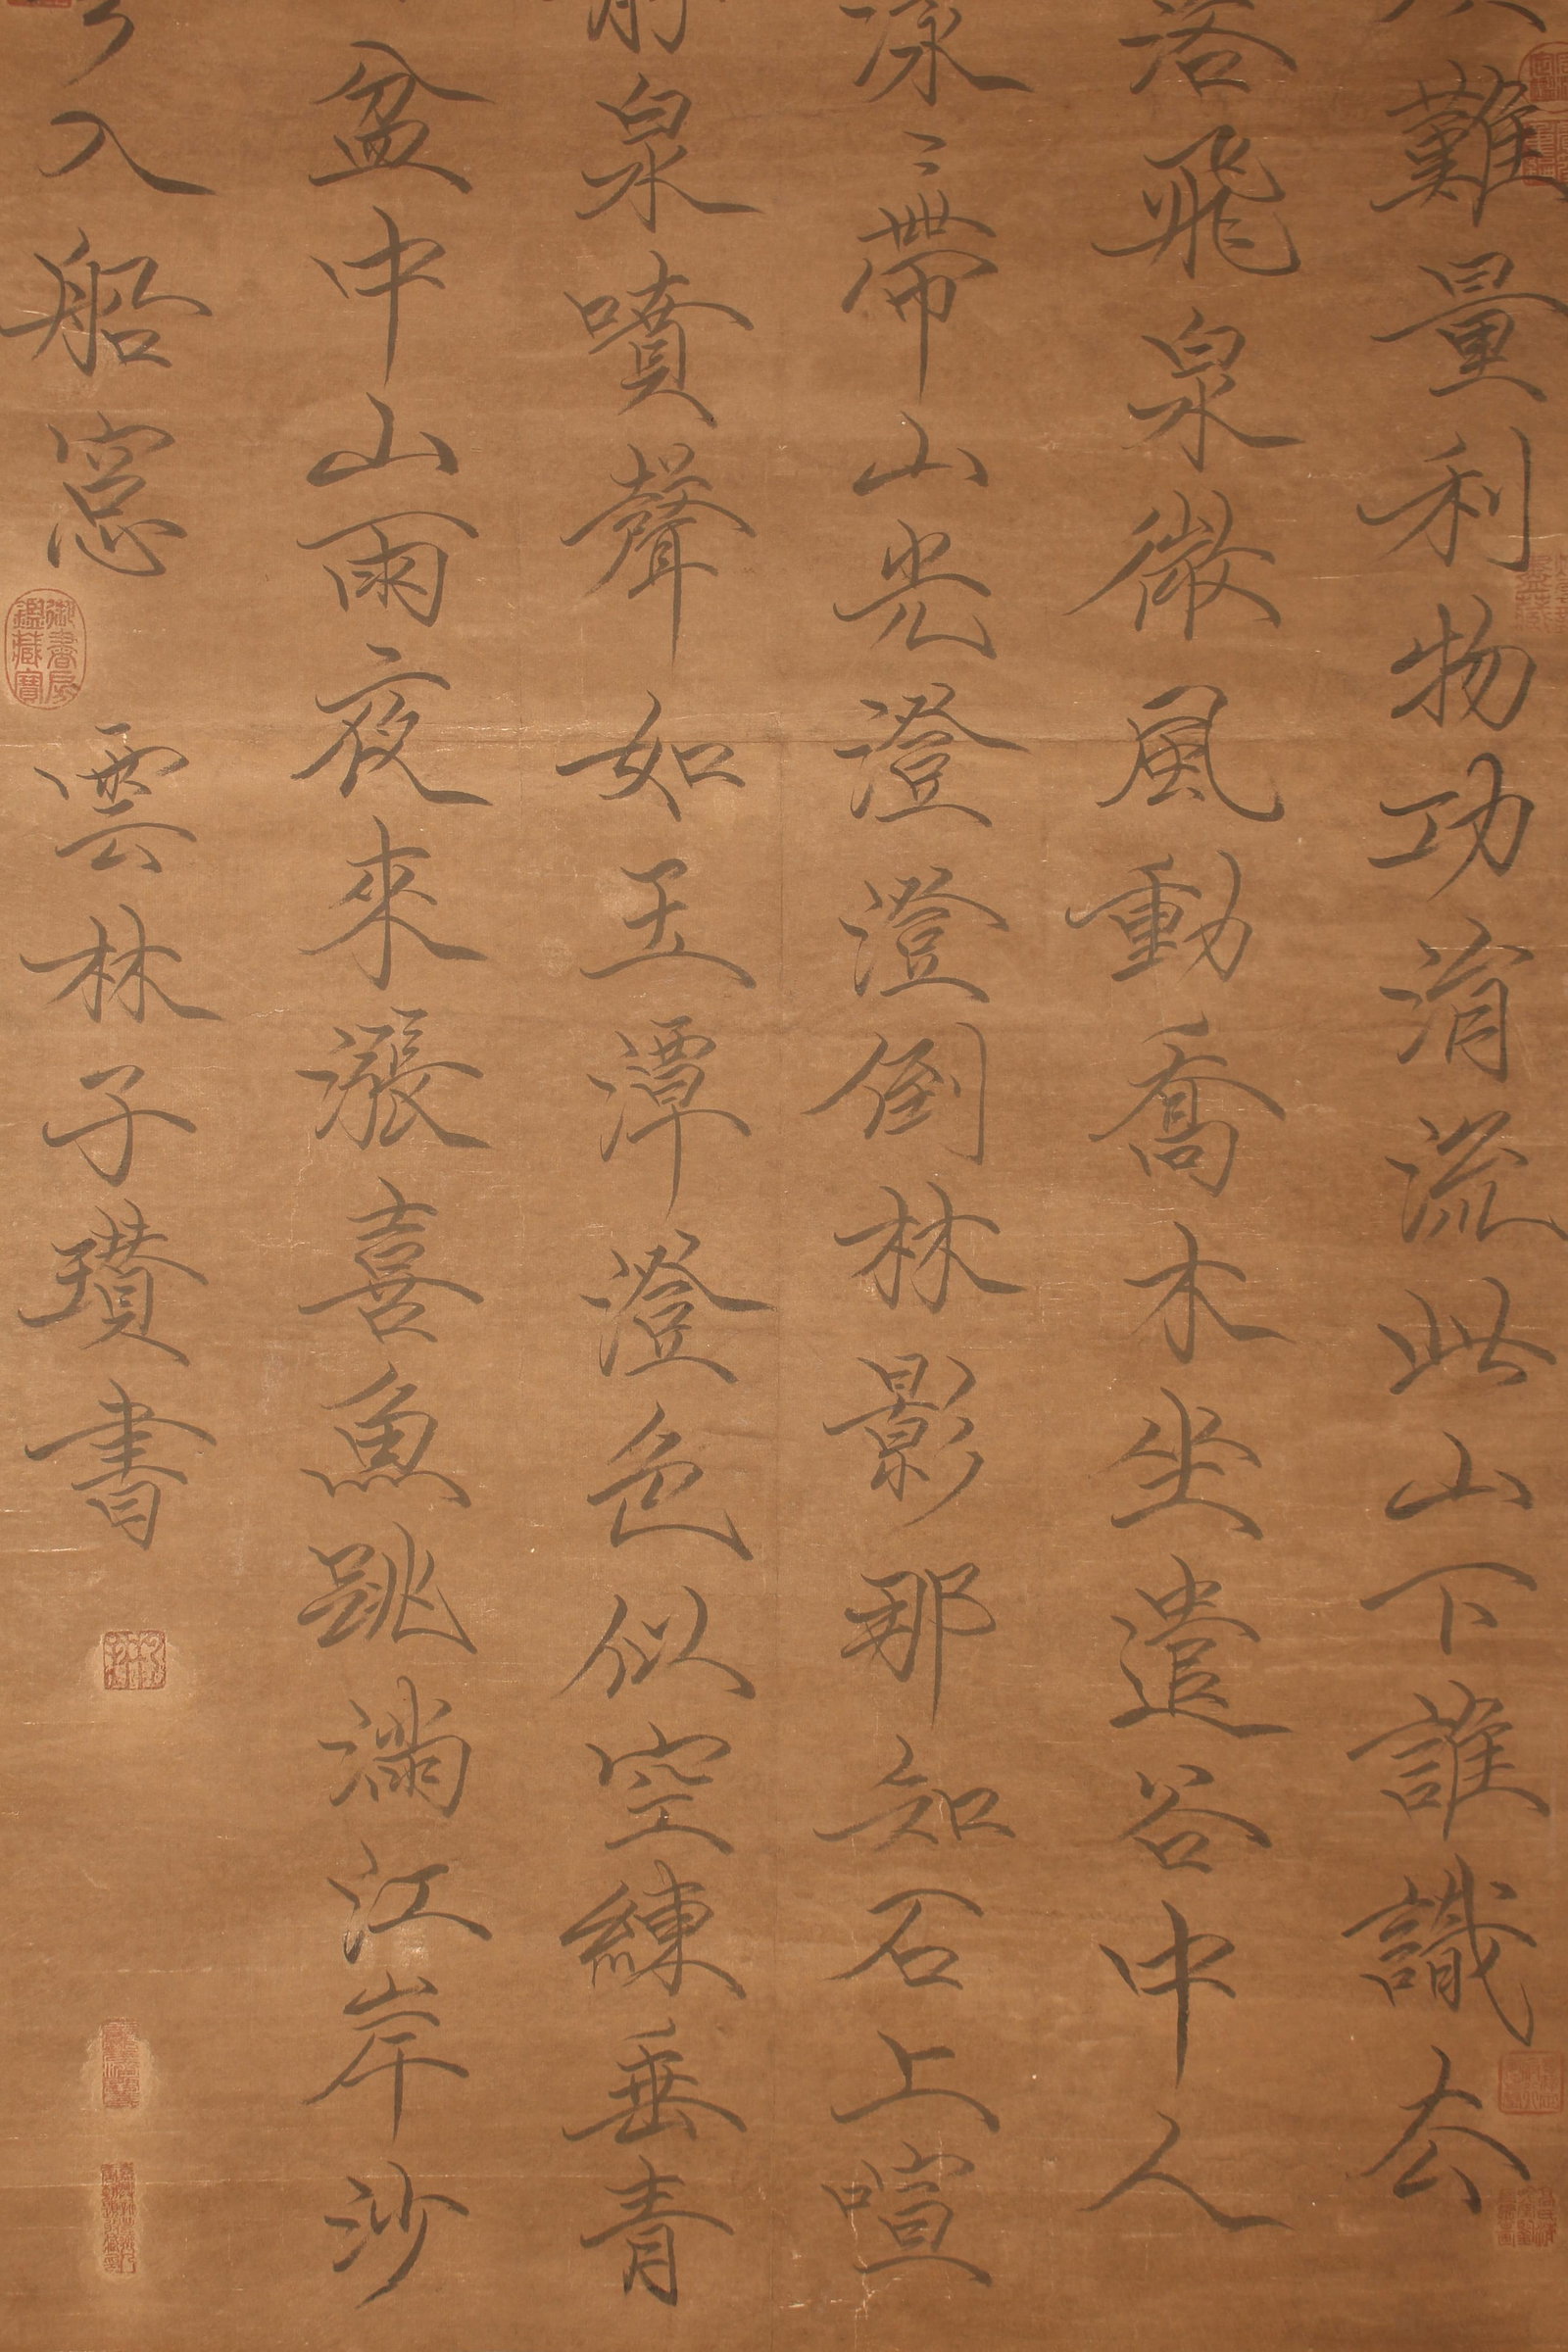 難量利物功涓流此山下誰識去
落飛泉微風動喬木坐遣谷中人
泳〻帶山光澄澄倒林影那知石上喧
泉噴聲如玉潭澄色似空練垂青
盆中山雨夜來漲喜魚跳滿江岸沙
入船窓
雲林子瓚書
御書房鑑藏寶